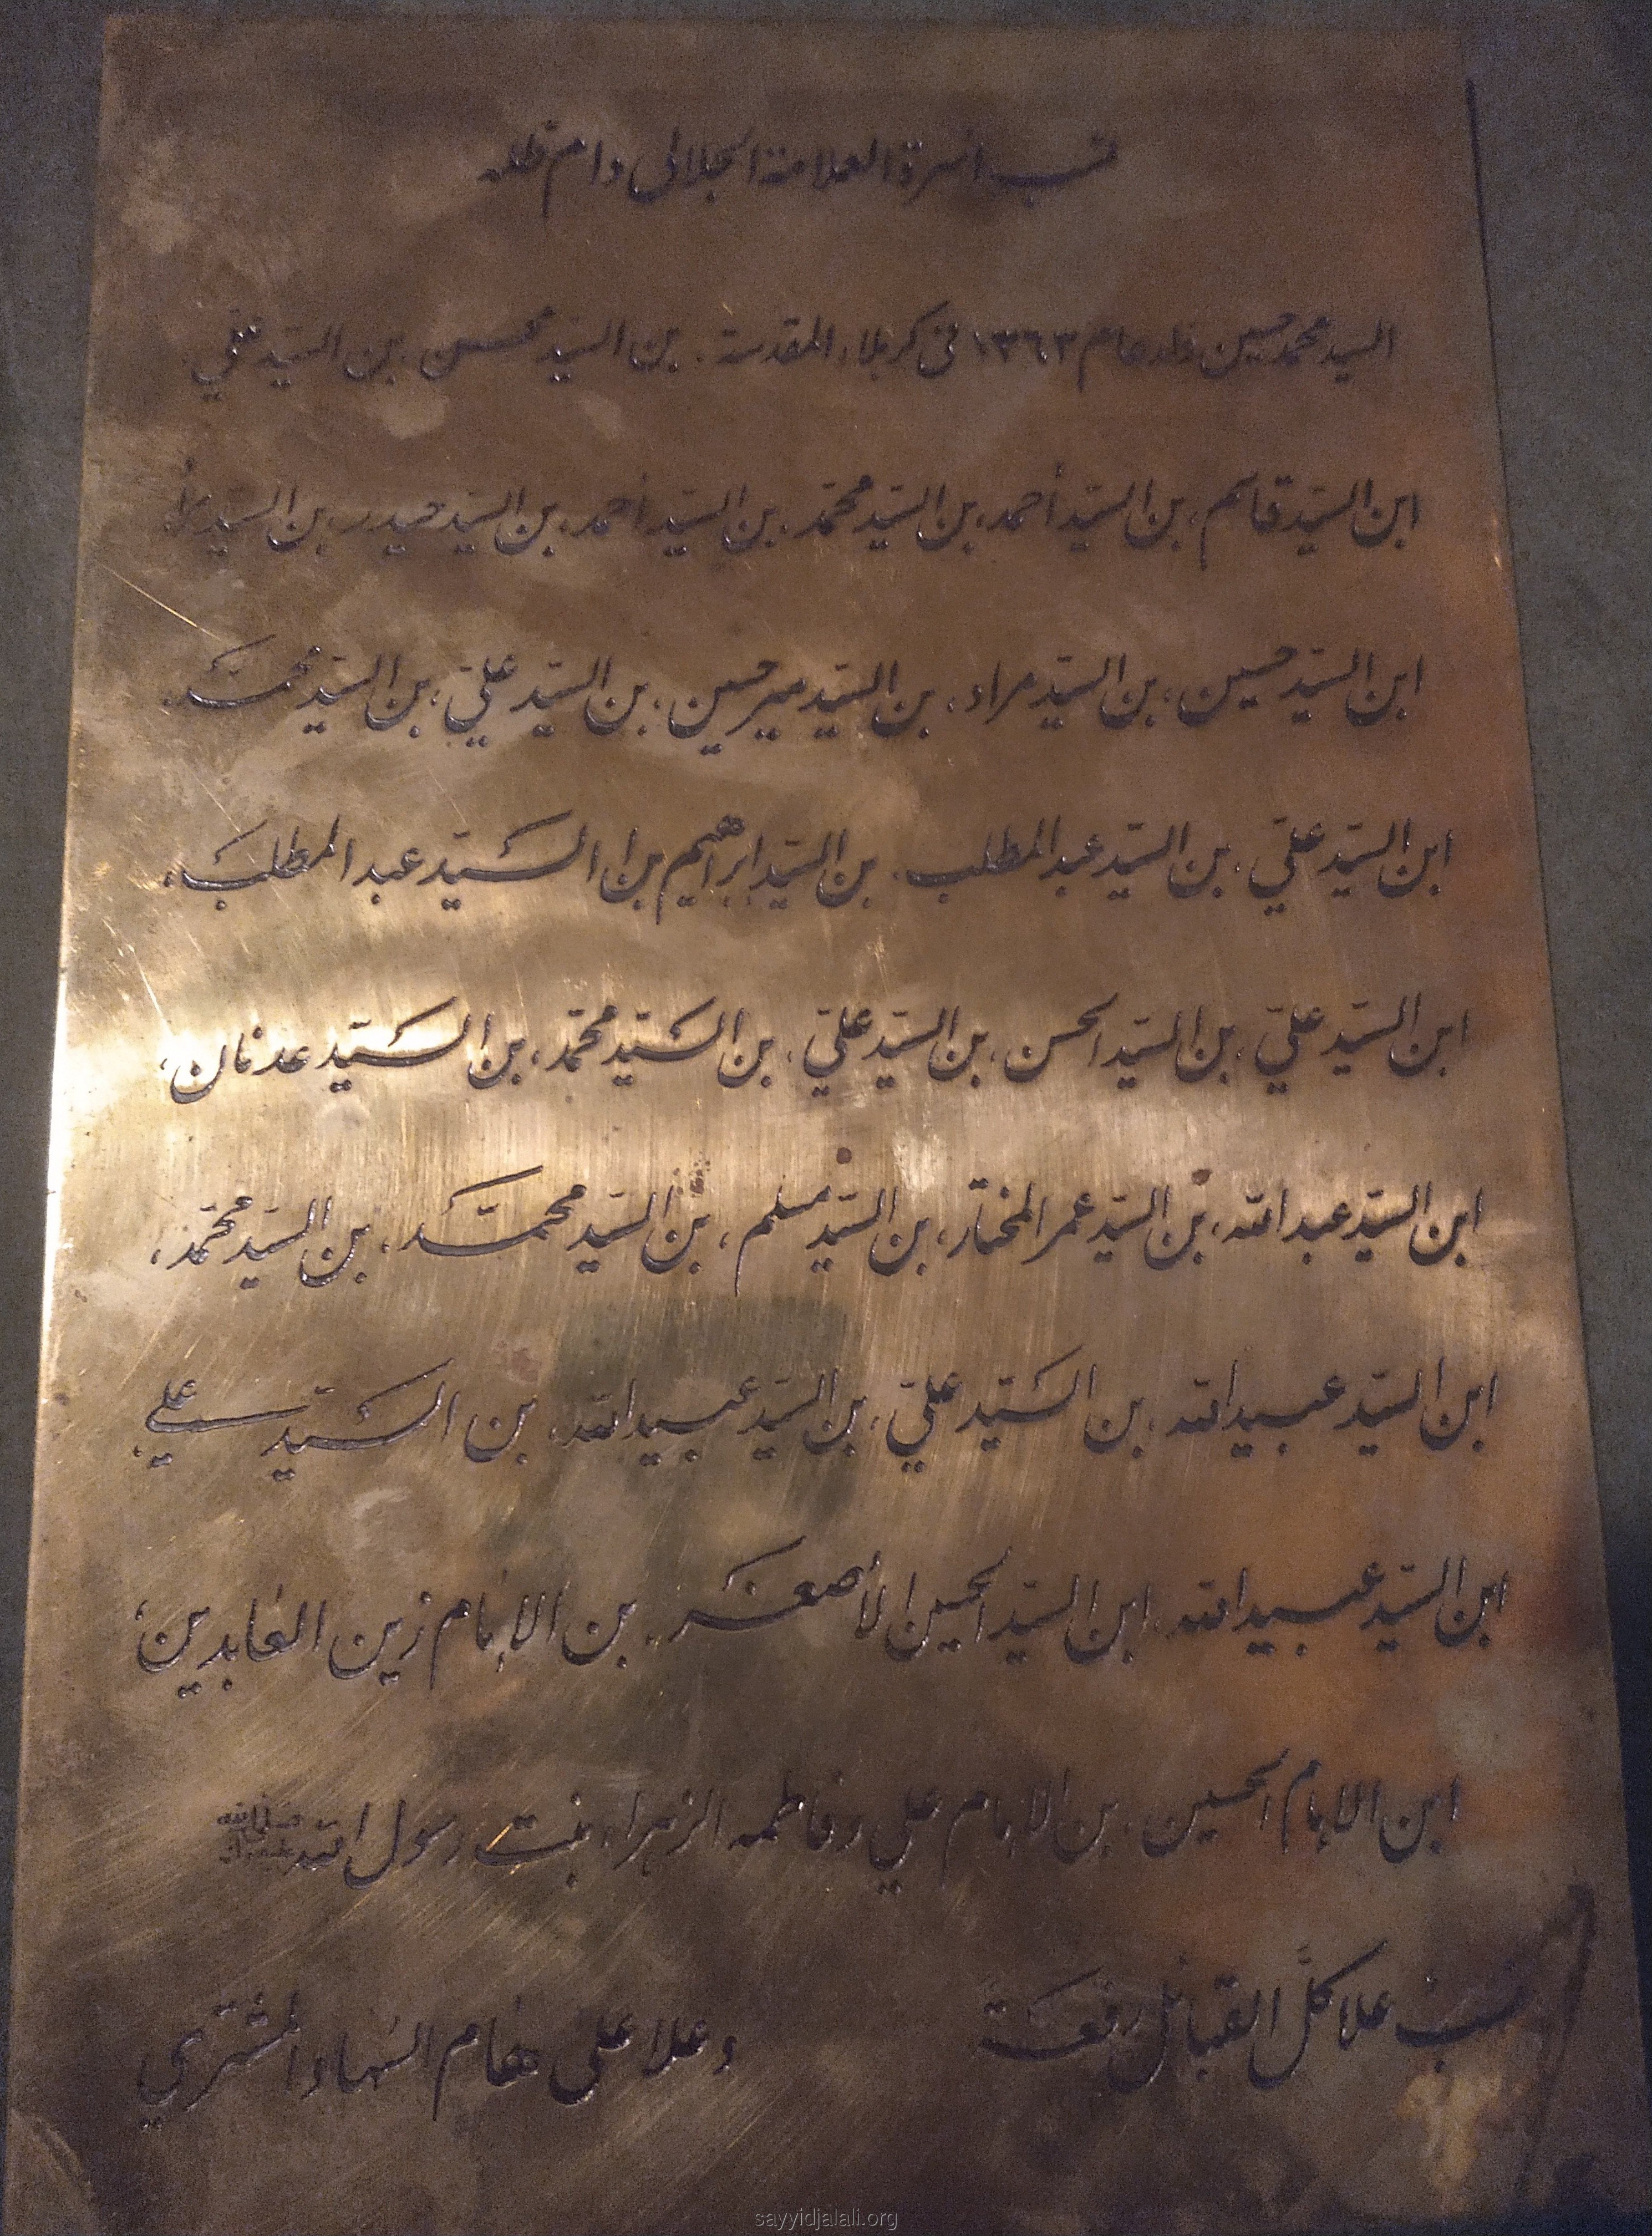 نسب أسرة العلامة الجلالي دام ظله
السيد محمد حسين ولد عام ١٣٦٣ في كربلاء المقدسة، بن السيد محسن، بن السيد علي
ابن السيّد قاسم، بن السيّد أحمد، بن السيّد محمّد، بن السيّد أحمد، بن السيّد حيدر، بن السيد
ابن السيّد حسين، بن السيّد مراد، بن السيّد مير حسين، بن السيّد عليّ، بن السيّد محمّد،
ابن السيّد عليّ، بن السيّد عبد المطلب، بن السيّد ابراهيم بن السيّد عبد المطلب،
ابن السيّد عليّ، بن السيّد الحسن، بن السيّد عليّ، بن السيّد محمّد، بن السيّد عدنان،
ابن السيّد عبد الله، بن السيّد عمر المختار، بن السيّد مسلم، بن السيّد محمّد، بن السيّد محمّد،
ابن السيّد عبيد الله، بن السيّد عليّ، بن السيّد عبيد الله، بن السيّد علي،
ابن السيّد عبيد الله، ابن السيّد الحسين الأصغر، بن الإمام زين العابدين،
ابن الإمام الحسين، بن الإمام علي وفاطمه الزهراء بنت رسول الله ﷺ
نسب علا كلّ القبائل رفعة وعلا على هام السها والمشتري
sayyidjalali.org